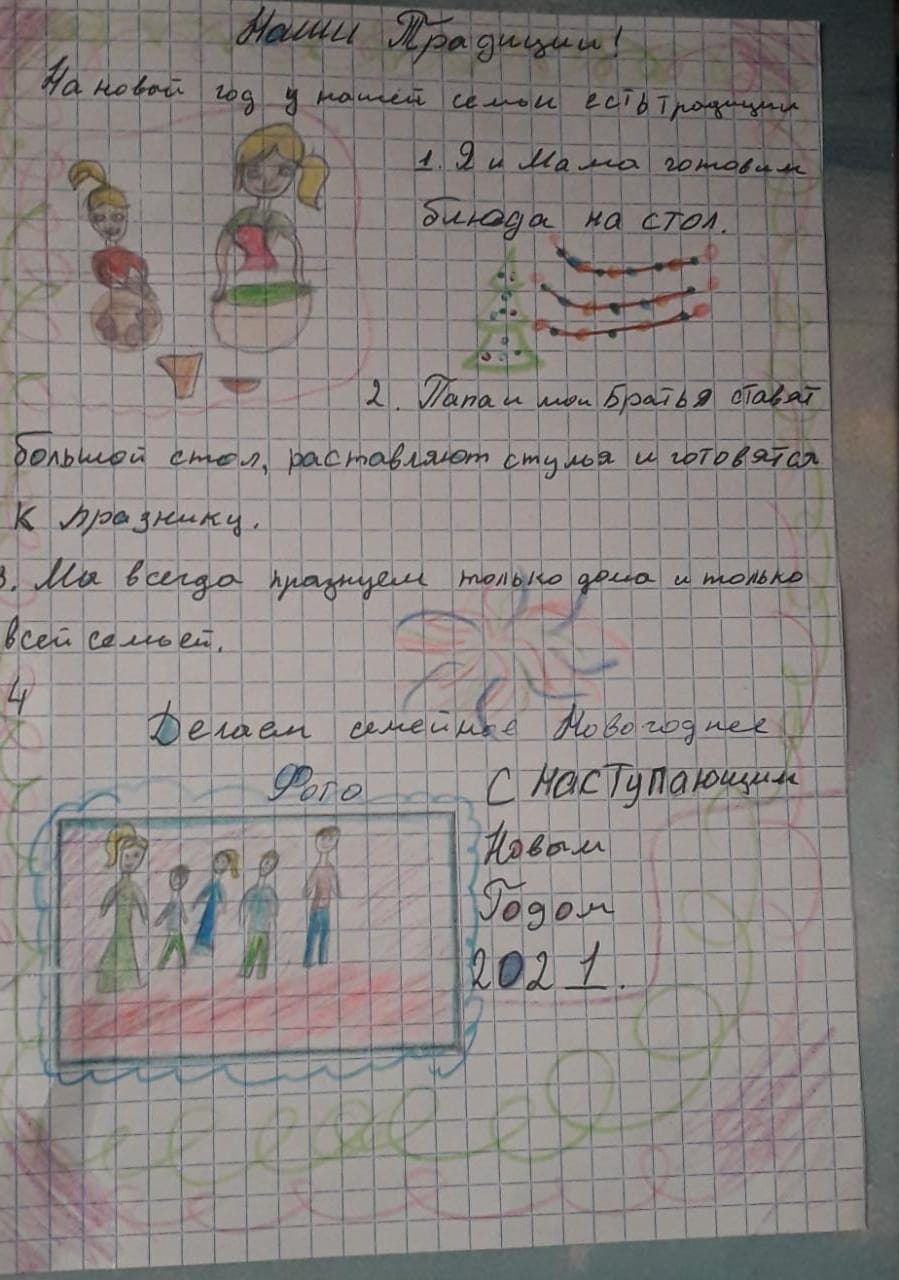 Наши Традиции!
На новой год у нашей семьи есть традиции
1. Я и Мама готовим
блюда на стол.
2. Папа и мои Братья ставят
большой стол, раставляют стулья и готовятся
к празнику.
3. Мы всегда празнуем только дома и только
всей семьей.
4
Делаем семейное Новогоднее
Фото
С наступающим
Новым
Годом
2021.